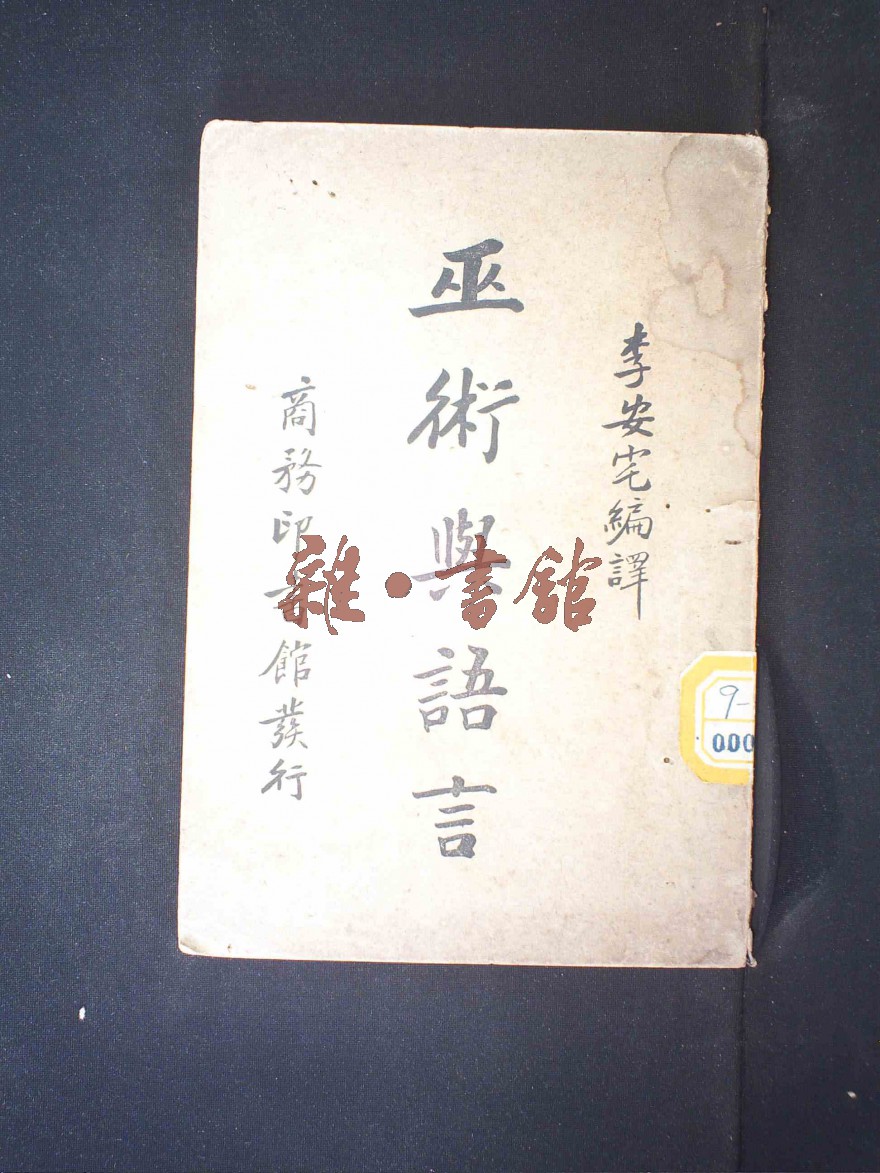 李安宅編譯
巫術與語言
商務印書館發行
雜·書館
9-
000